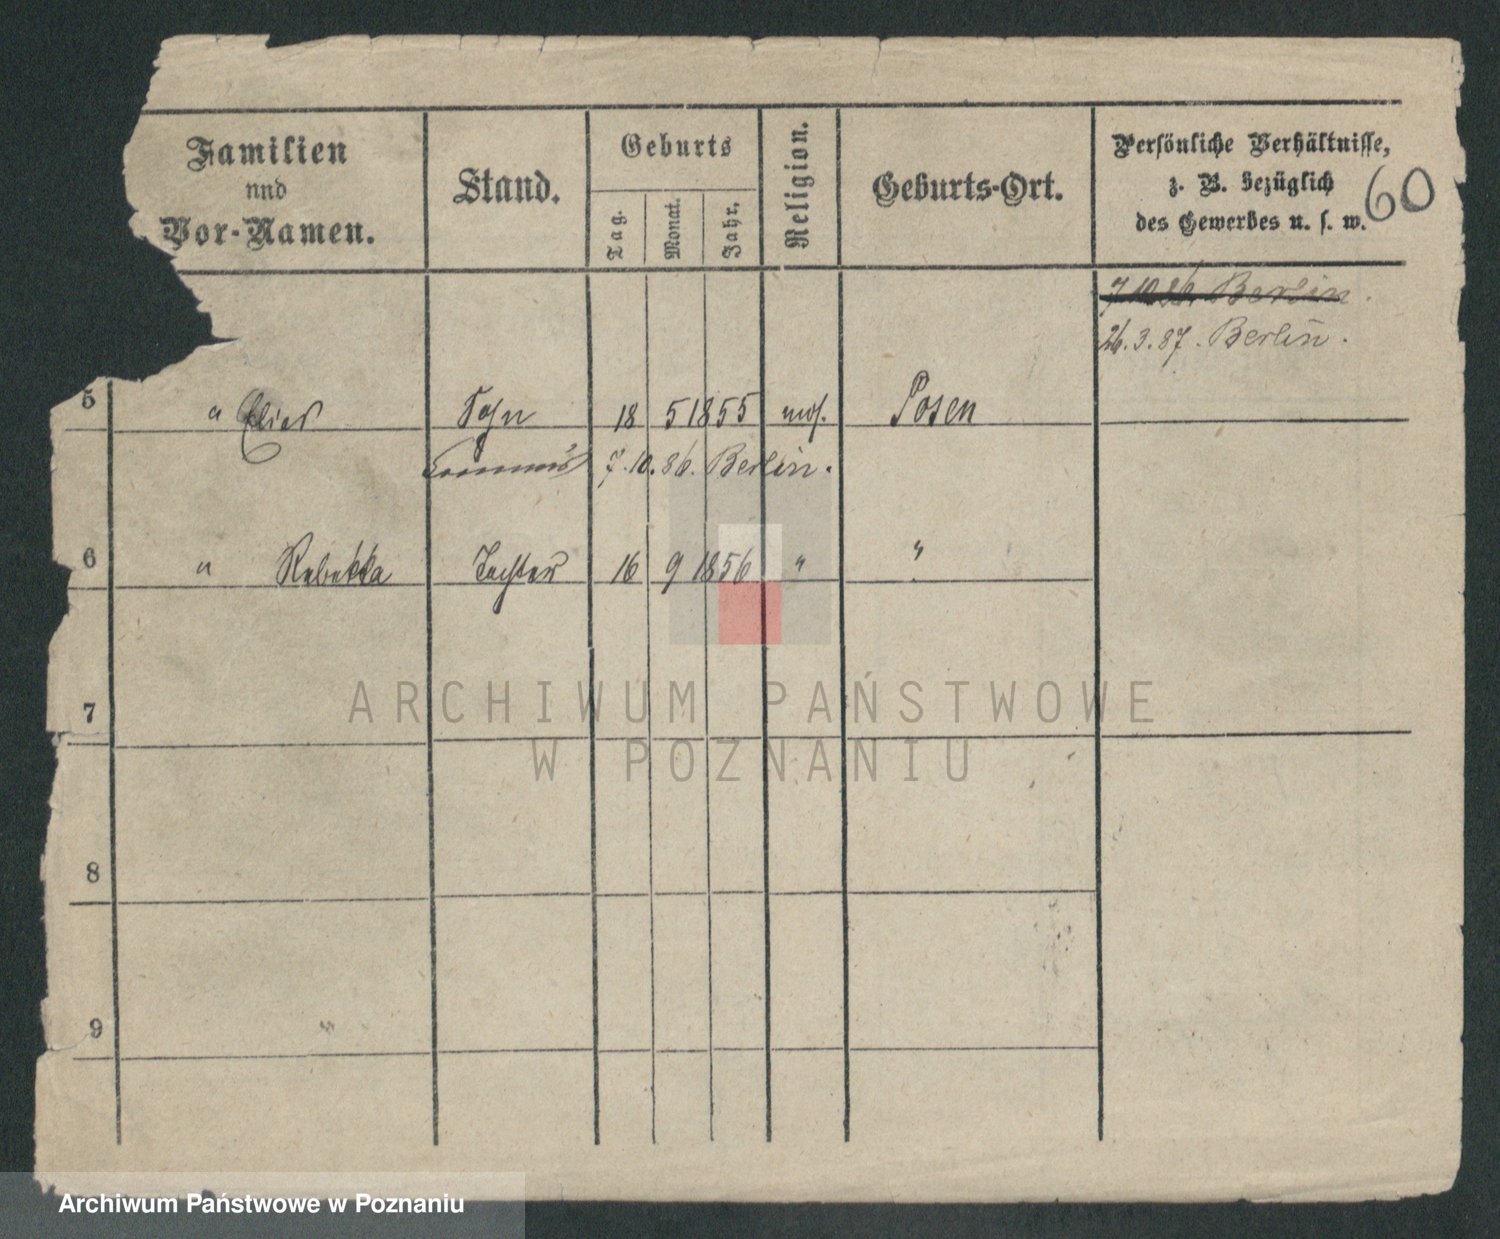 Familien
und
Vor-Namen.
Stand.
Geburts
Tag.
Monat.
Jahr.
Religion.
Geburts-Ort.
Persönliche Verhältnisse,
z. B. bezüglich
des Gewerbes u. s. w.
60
7.10.86. Berlin.
26.3.87. Berlin.
5 " Elias Sohn 18 5 1855 mos. Posen
7.10.86. Berlin.
6 " Rebekka Tochter 16 9 1856 " "
7
ARCHIWUM PAŃSTWOWE
W POZNANIU
8
9
Archiwum Państwowe w Poznaniu